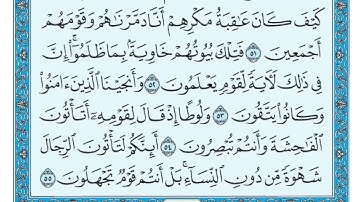 كَيْفَ كَانَ عَٰقِبَةُ مَكْرِهِمْ أَنَّا دَمَّرْنَٰهُمْ وَقَوْمَهُمْ
أَجْمَعِينَ ٥١ فَتِلْكَ بُيُوتُهُمْ خَاوِيَةًۢ بِمَا ظَلَمُوٓا۟ ۗ إِنَّ
فِى ذَٰلِكَ لَءَايَةً لِّقَوْمٍ يَعْلَمُونَ ٥٢ وَأَنجَيْنَا ٱلَّذِينَ ءَامَنُوا۟
وَكَانُوا۟ يَتَّقُونَ ٥٣ وَلُوطًا إِذْ قَالَ لِقَوْمِهِۦٓ أَتَأْتُونَ
ٱلْفَٰحِشَةَ وَأَنتُمْ تُبْصِرُونَ ٥٤ أَئِنَّكُمْ لَتَأْتُونَ ٱلرِّجَالَ
شَهْوَةً مِّن دُونِ ٱلنِّسَآءِ ۚ بَلْ أَنتُمْ قَوْمٌ تَجْهَلُونَ ٥٥